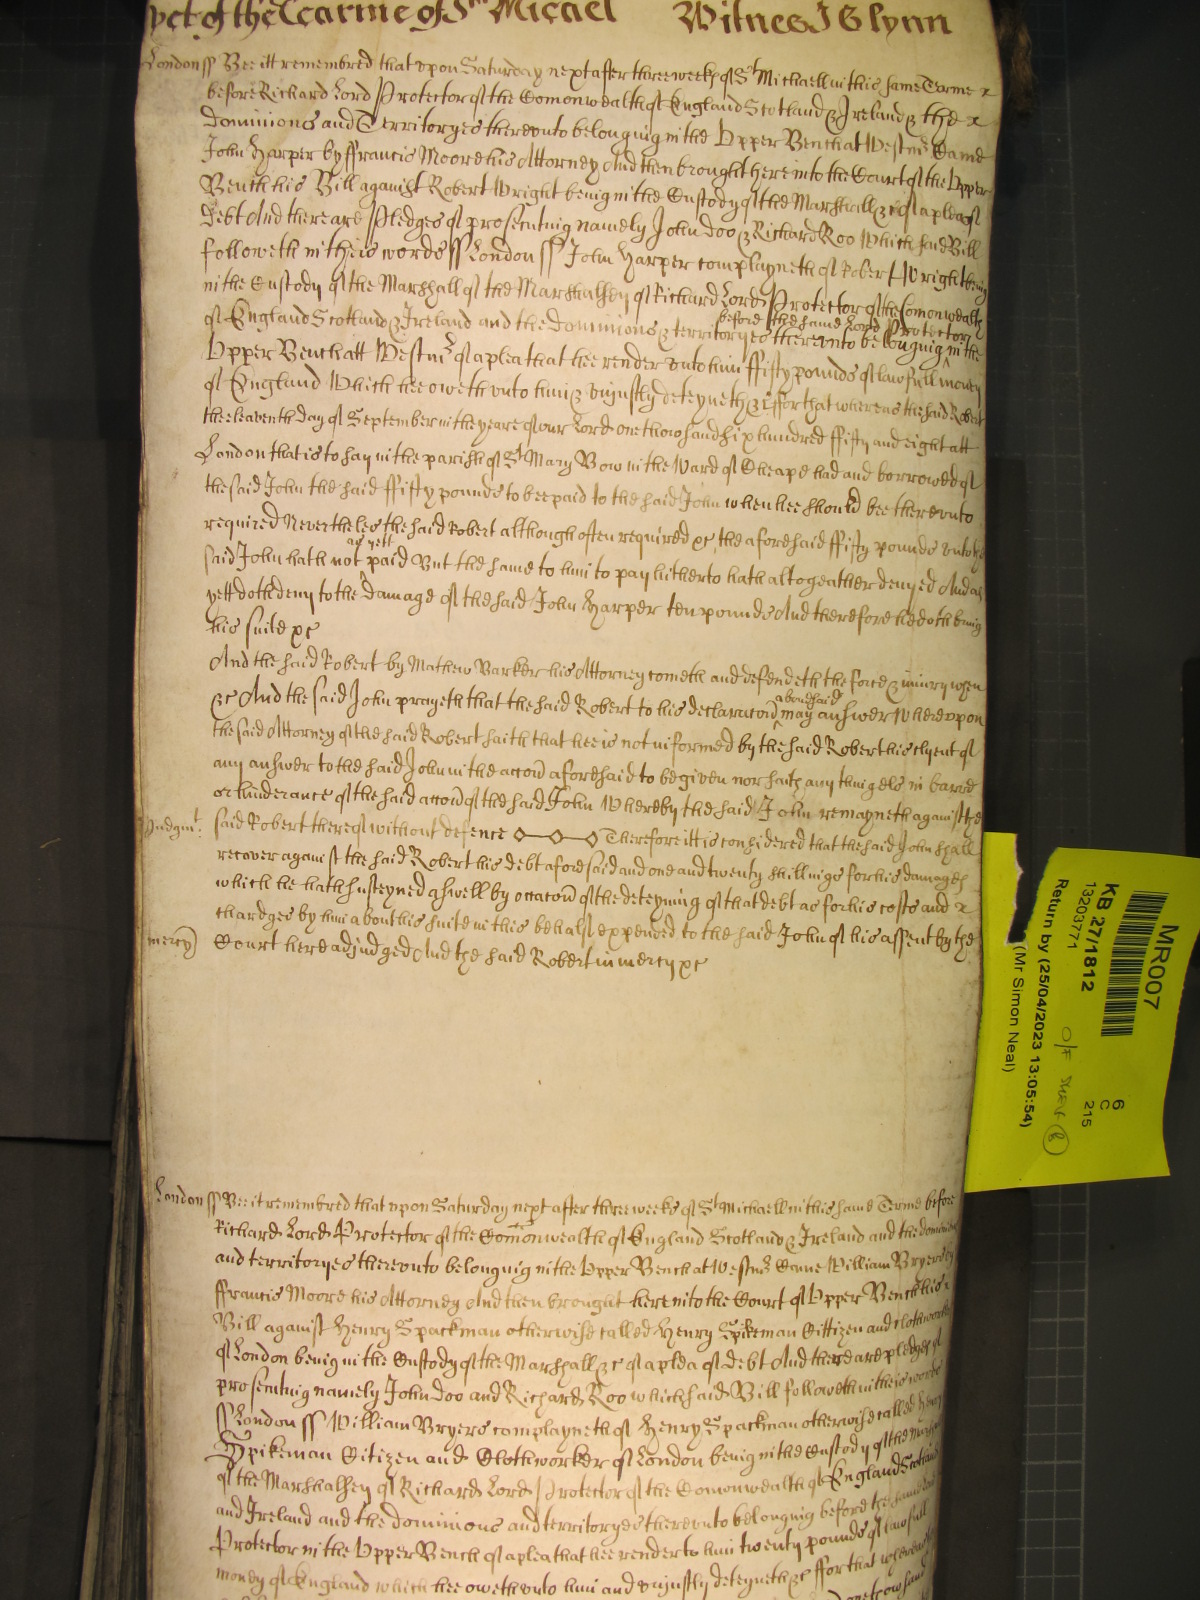 yet of the Tearme of St Micael Witnes J Glynn
London ss Bee itt remembred that upon Saturday next after three weeks of St Michaell in this same Terme x
before Richard Lord Protector of the Comonwealth of England Scotland & Ireland & the x
dominions and Territoryes thereunto belonging in the Upper Bench at Westmr Came
John Harper by ffrancis Moore his Attorney And then brought here into the Court of the Upper
Bench his Bill against Robert Wright being in the Custody of the Marshall &c of a plea of
debt And there are Pledges of prosecuting namely John Doo & Richard Roo Which said Bill
followeth in theis words ss London ss John Harper complayneth of Robert Wright being
in the Custody of the Marshall of the Marshalsey of Richard Lord Protector of the Comonwealth
of England Scotland & Ireland and the dominions & territoryes thereunto belonging in the
before the same Lord Protector
Upper Bench att Westmr of a plea that hee render unto him ffifty pounds of lawfull money
of England Which hee oweth unto him & unjustly deteyneth &c ffor that whereas the said Robert
the eleaventh day of September in the yeare of our Lord one thowsand six hundred ffifty and eight att
London that is to say in the parish of St Mary Bow in the Ward of Cheape had and borrowed of
the said John the said ffifty pounds to bee paid to the said John when hee should bee thereunto
required Neverthelesse the said Robert although often required &c the aforesaid ffifty pounds unto the
said John hath not as yett paid But the same to him to pay hitherto hath altogeather denyed And as
yett doth deny to the damage of the said John Harper ten pounds And therefore hee doth bring
his suite &c
And the said Robert by Mathew Barker his Attorney cometh and defendeth the force & injury when
&c And the said John prayeth that the said Robert to his declaracon abovesaid may answer Whereupon
the said Attorney of the said Robert saith that hee is not informed by the said Robert his clyent of
any answer to the said John in the accon aforesaid to be given nor saith any thing els in barre
or hinderance of the said accon of the said John Whereby the said John remayneth against the
Judgmt: said Robert thereof without defence Therefore itt is considered that the said John shall
recover against the said Robert his debt aforesaid and one and twenty shillings for his damages
which he hath susteyned aswell by occacon of the deteyning of that debt as for his costs and x
chardges by him about his suite in this behalf expended to the said John of his assent by the
mercy Court here adjudged And the said Robert in mercy &c
London ss Bee it remembred that upon Saturday next after three weeks of St Michaell in this same Terme before
Richard Lord Protector of the Comonwealth of England Scotland & Ireland and the dominions
and territoryes thereunto belonging in the Upper Bench at Westmr Came William Bryers by
ffrancis Moore his Attorney And then brought here into the Court of Upper Bench his
Bill against Henry Spackman otherwise called Henry Spikeman Cittizen and Clothworker
of London being in the Custody of the Marshall &c of a plea of debt And there are pledges of
prosecuting namely John Doo and Richard Roo which said Bill followeth in theis words
ss London ss William Bryers complayneth of Henry Spackman otherwise called Henry
Spikeman Citizen and Clothworker of London being in the Custody of the Marshall
of the Marshalsey of Richard Lord Protector of the Comonwealth of England Scotland
and Ireland and the dominions and territoryes thereunto belonging before the same Lord
Protector in the Upper Bench of a plea that hee render to him twenty pounds of lawfull
money of England which hee oweth unto him and unjustly deteyneth &c ffor that whereas
one thowsand
MR007
6
C
215
KB 27/1812
13203771
Return by (25/04/2023 13:05:54)
(Mr Simon Neal)